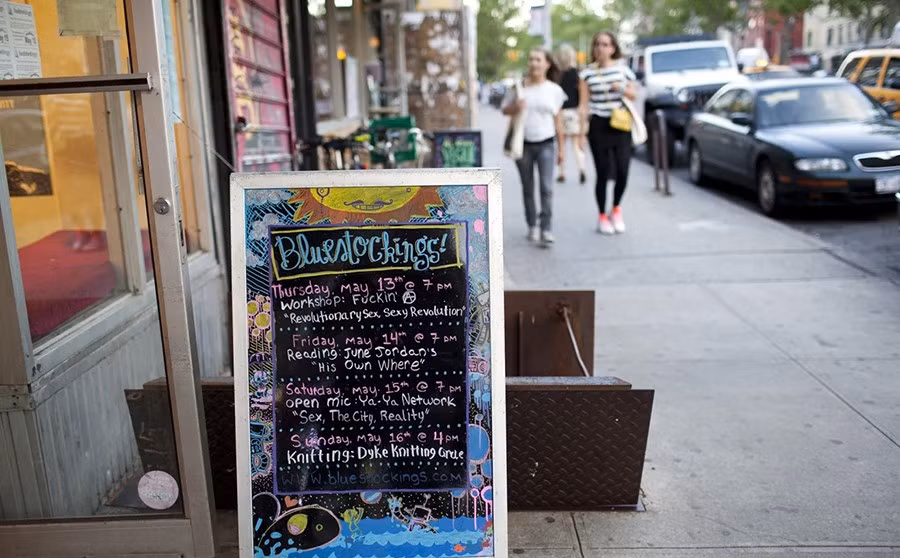 Bluestockings!
Thursday, may 13th @ 7 pm
Workshop: Fuckin' Ⓐ
"Revolutionary Sex, Sexy Revolution"
Friday, may 14th @ 7 pm
Reading: June Jordan's
"His Own Where"
Saturday, may 15th @ 7 pm
open mic: Ya-Ya Network
"Sex, The City, Reality"
Sunday, may 16th @ 4 pm
Knitting: Dyke Knitting Circle
www.bluestockings.com